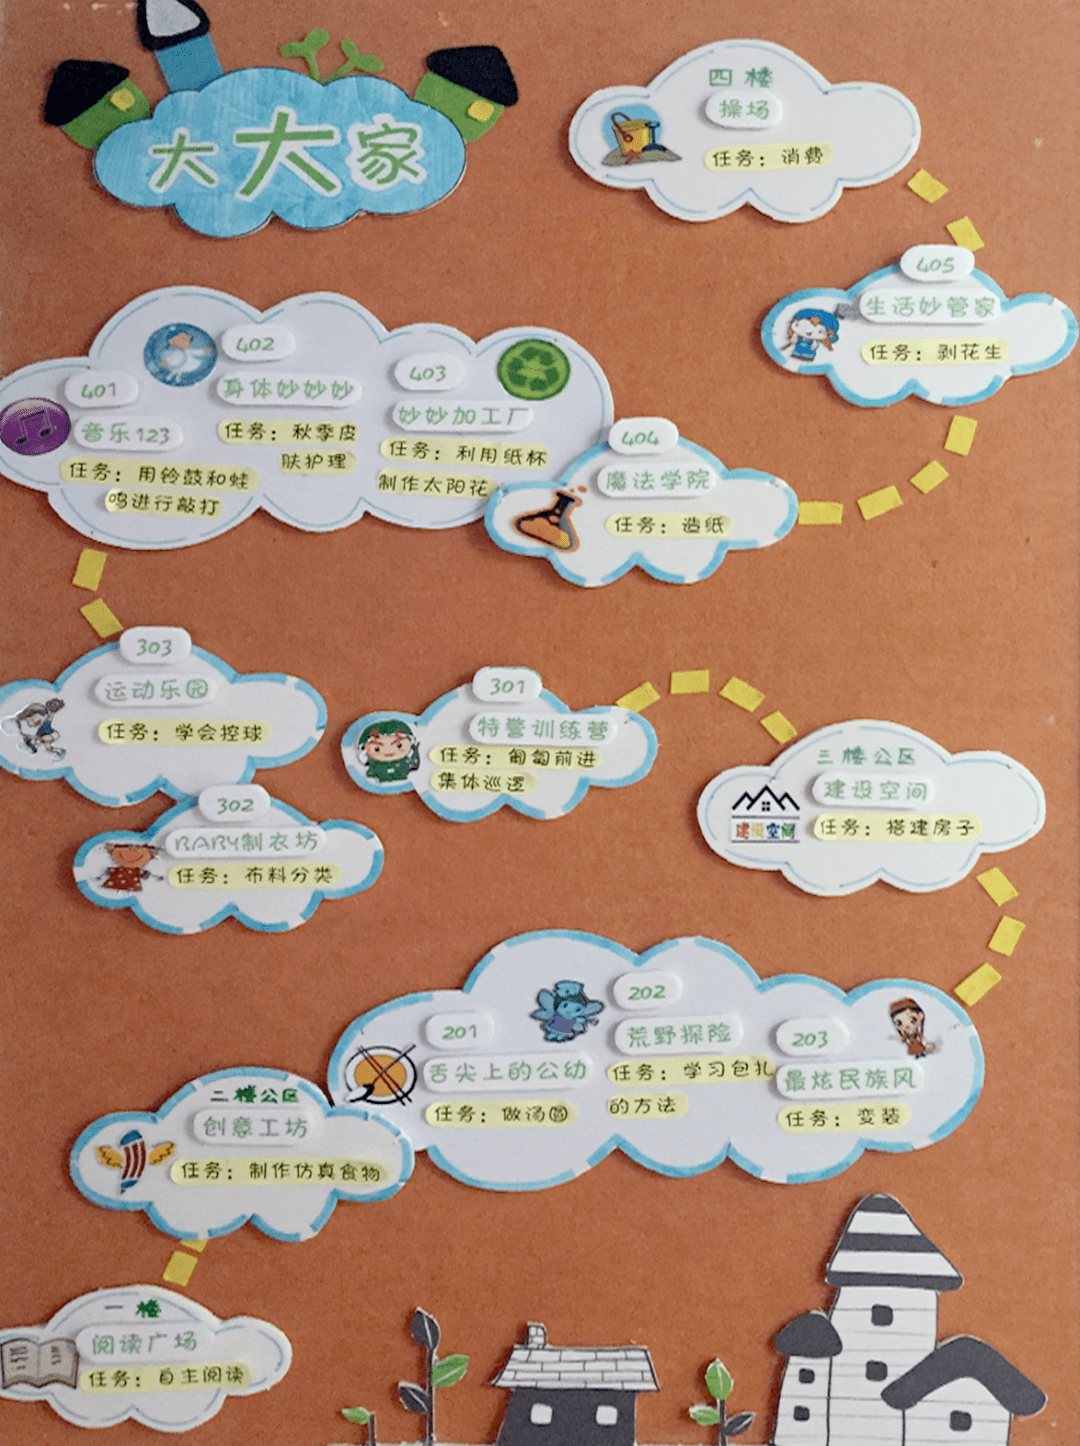 大大家
四楼
操场
任务：消费
405
生活妙管家
任务：剥花生
401
音乐123
任务：用铃鼓和蛙
鸣进行敲打
402
身体妙妙妙
任务：秋季皮
肤护理
403
妙妙加工厂
任务：利用纸杯
制作太阳花
404
魔法学院
任务：造纸
303
运动乐园
任务：学会控球
301
特警训练营
任务：匍匐前进
集体巡逻
三楼公区
建设空间
建设空间
任务：搭建房子
302
BABY制衣坊
任务：布料分类
201
舌尖上的公幼
任务：做汤圆
202
荒野探险
任务：学习包扎
的方法
203
最炫民族风
任务：变装
二楼公区
创意工坊
任务：制作仿真食物
一楼
阅读广场
任务：自主阅读